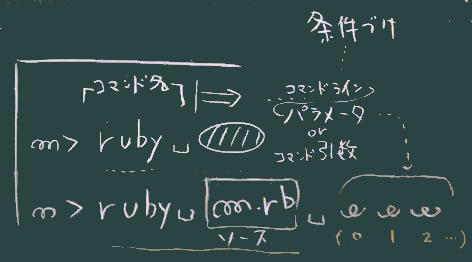 条件づけ
「コマンド名」 ⇒ コマンドライン
パラメータ
or
コマンド引数
m> ruby␣
m> ruby␣ m.rb ␣
ソース
(0 1 2 …)